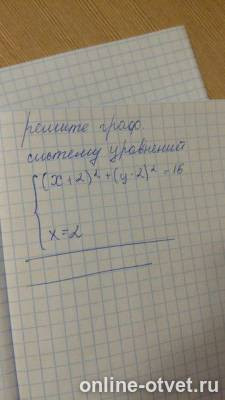 решите граф.
систему уравнений
(x+2)² + (y-2)² = 16
x=2
online-otvet.ru